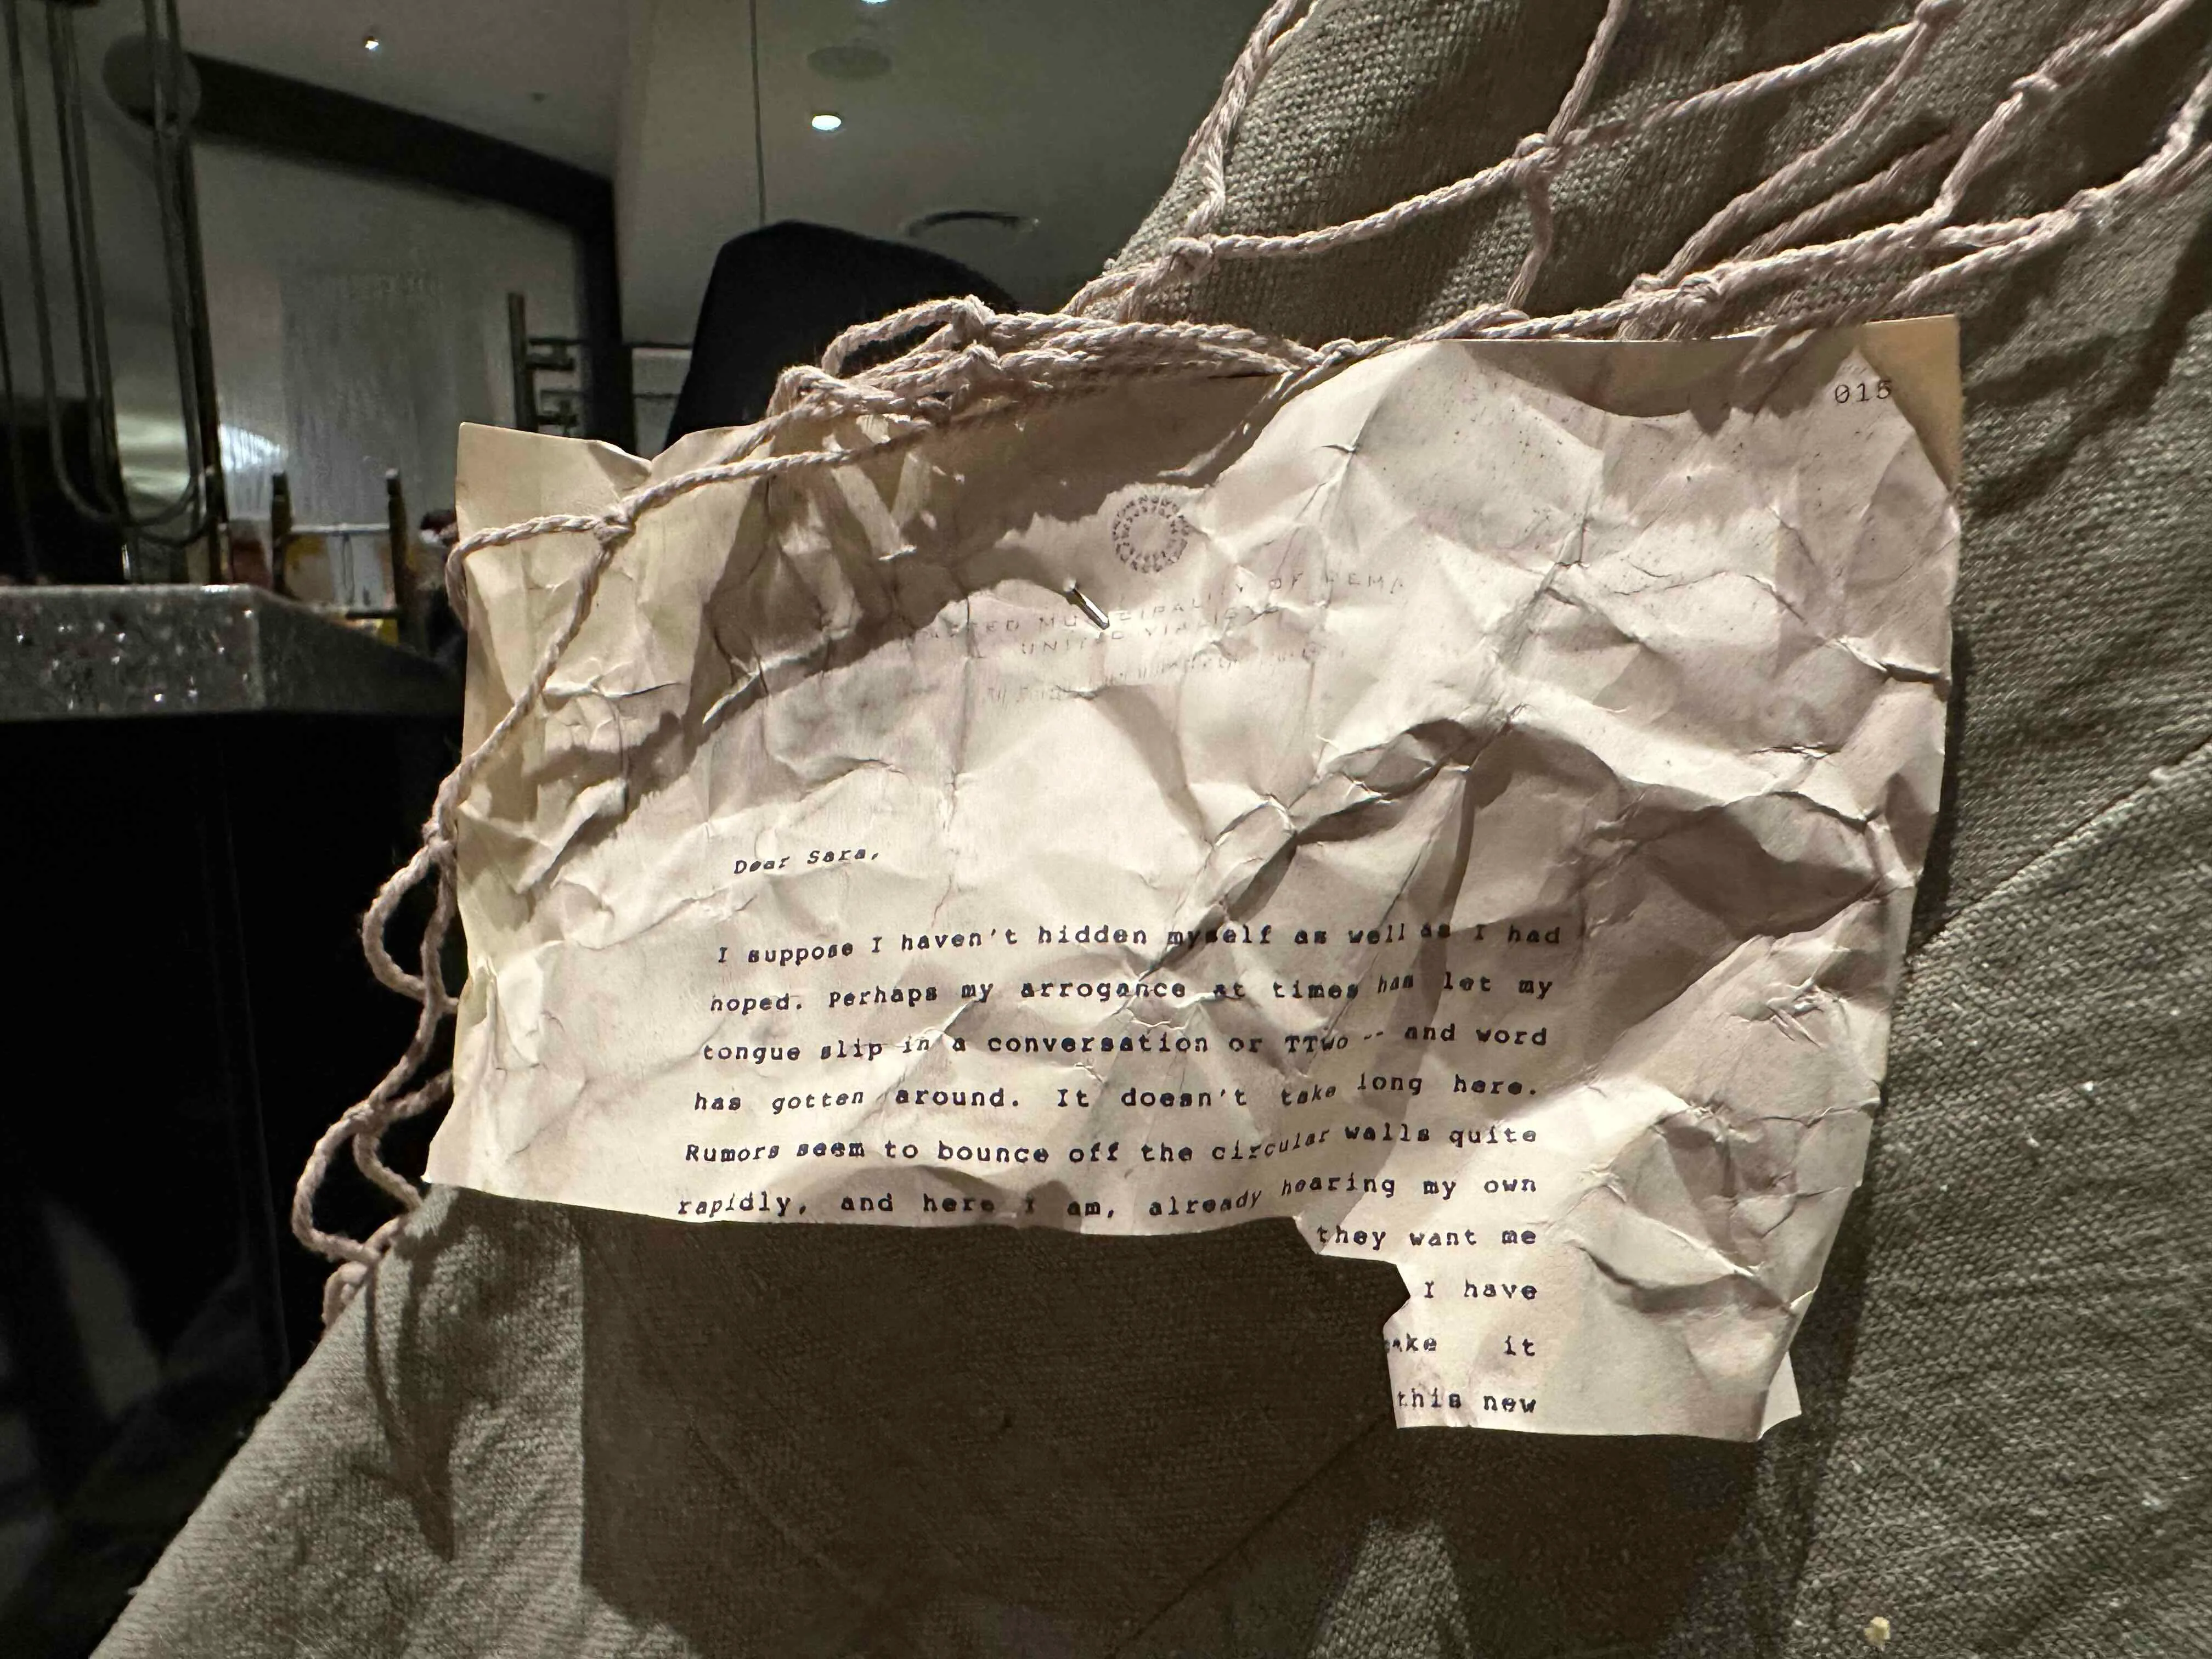 015
MUNICIPALITY OF DEMA
UNITED VIALISTS
Dear Sara,
I suppose I haven't hidden myself as well as I had
hoped. Perhaps my arrogance at times has let my
tongue slip in a conversation or TTwo -- and word
has gotten around. It doesn't take long here.
Rumors seem to bounce off the circular walls quite
rapidly, and here I am, already hearing my own
they want me
I have
it
this new